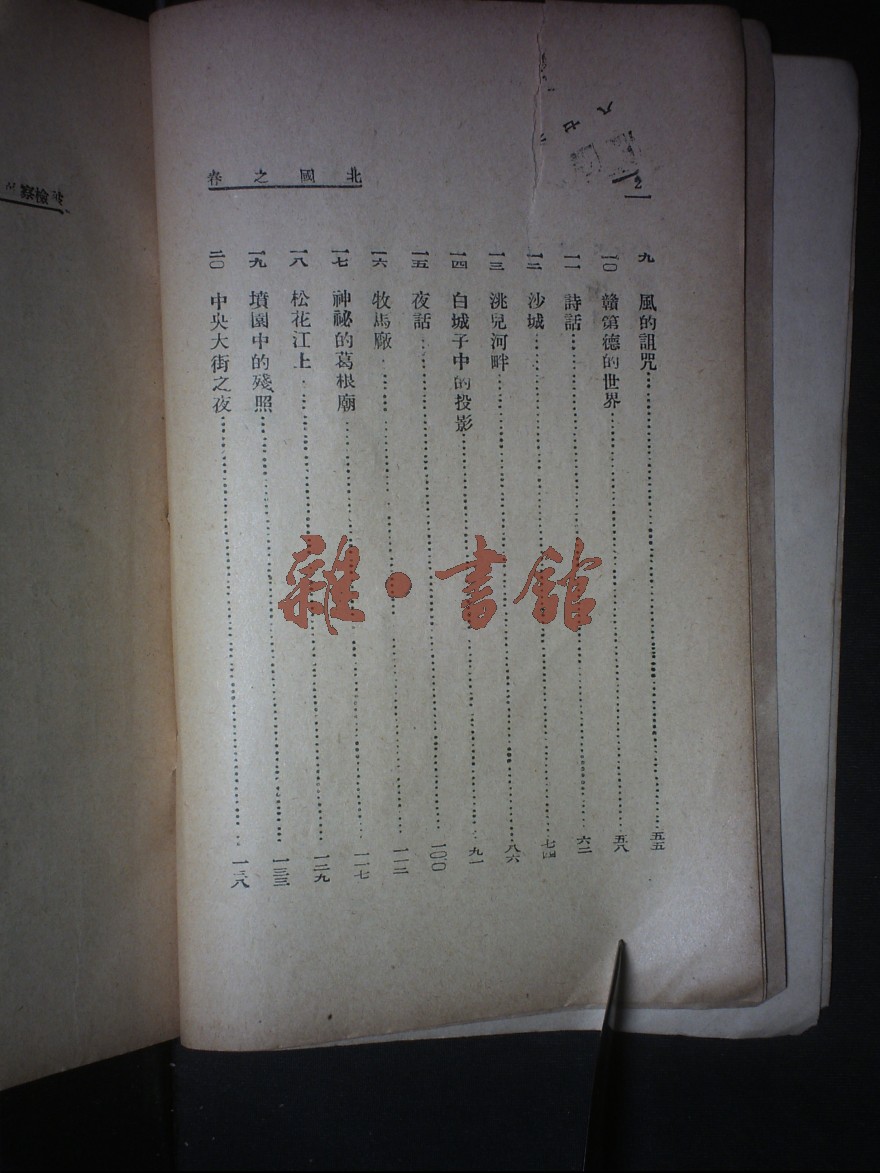 北國之春
2
九 風的詛咒 五五
一〇 贛第德的世界 五八
一一 詩話 六二
一二 沙城 七四
一三 洮兒河畔 八六
一四 白城子中的投影 九一
一五 夜話 一〇〇
一六 牧馬廠 一一二
一七 神祕的葛根廟 一一七
一八 松花江上 一二九
一九 墳園中的殘照 一三三
二〇 中央大街之夜 一三八
雜·書館
檢察